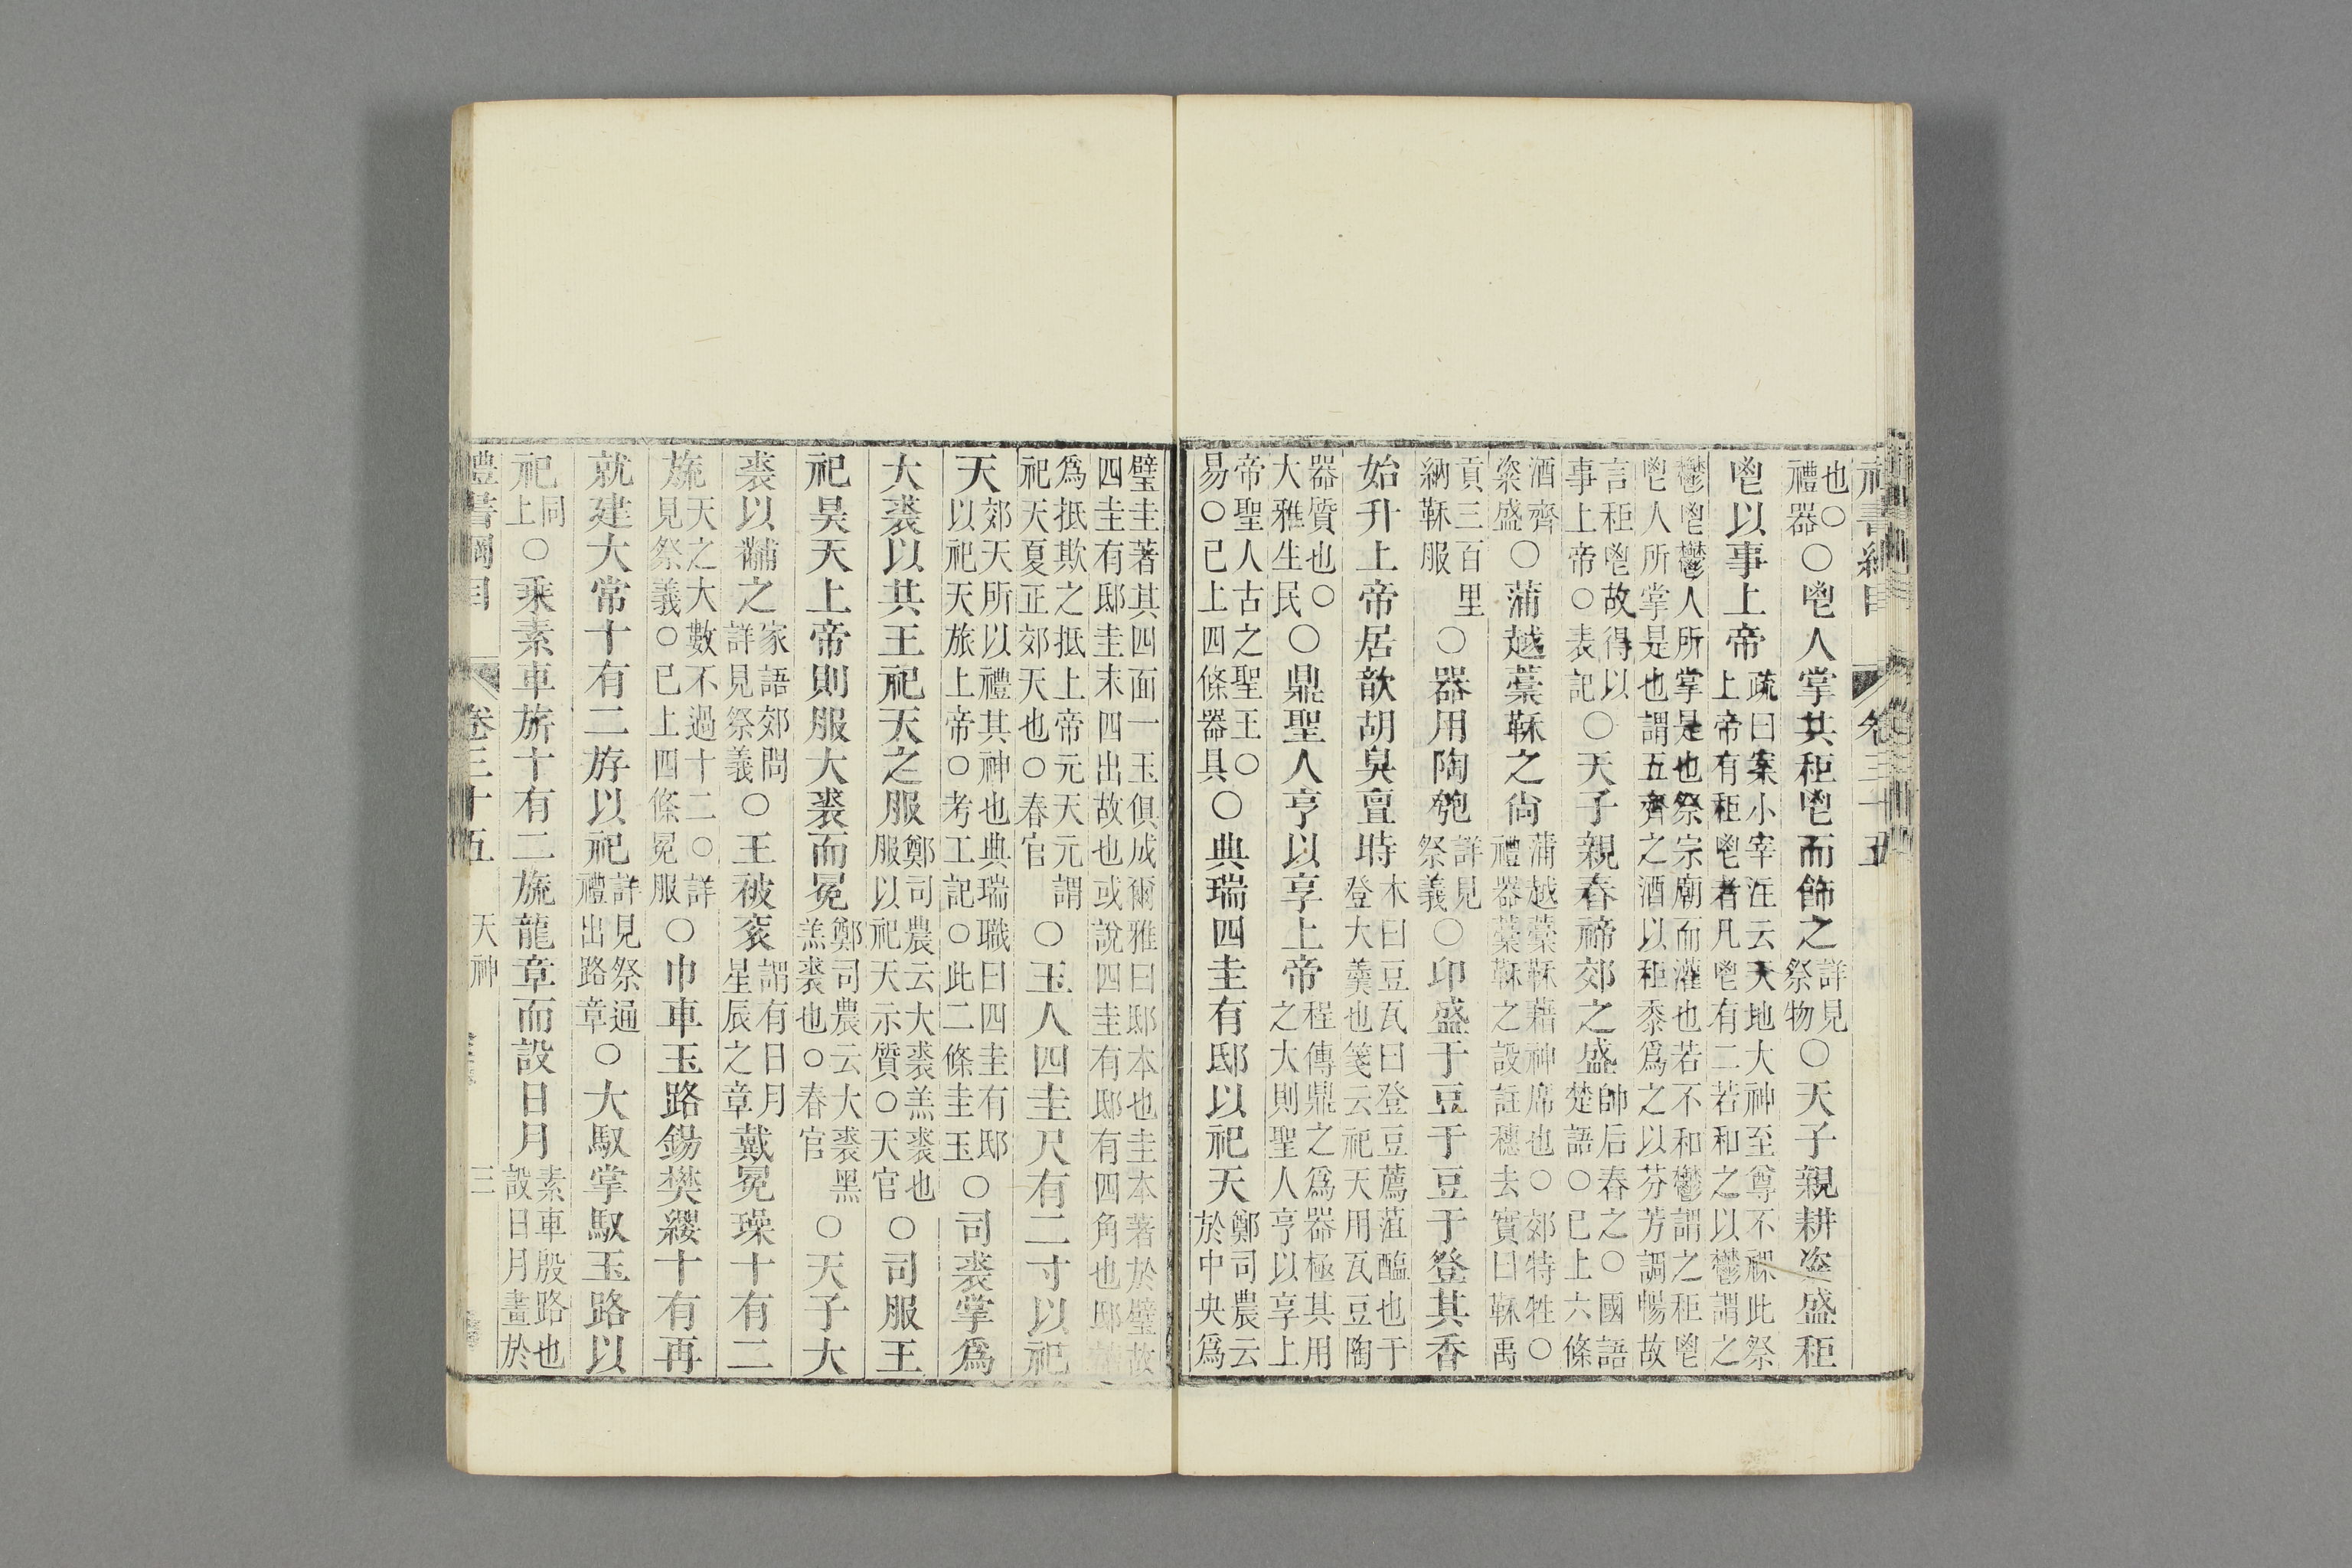 禮書綱目 卷三十五
也○禮器○鬯人掌共秬鬯而飾之詳見祭物○天子親耕粢盛秬
鬯以事上帝疏曰案小宰注云天地大神至尊不祼此祭上帝有秬鬯者凡鬯有二若和之以鬱謂之
鬱鬯鬱人所掌是也祭宗廟而灌也若不和鬱謂之秬鬯鬯人所掌是也謂五齊之酒以秬黍爲之以芬芳調暢故
言秬鬯故得以事上帝○表記○天子親舂禘郊之盛帥后舂之○國語楚語○已上六條
酒齊粢盛○蒲越藁鞂之尙蒲越藁鞂藉神席也○郊特牲○禮器藁鞂之設註穗去實曰鞂禹
貢三百里納鞂服○器用陶匏詳見祭義○卬盛于豆于豆于登其香
始升上帝居歆胡臭亶時木曰豆瓦曰登豆薦菹醢也于登大羹也箋云祀天用瓦豆陶
器質也○大雅生民○鼎聖人亨以享上帝程傳鼎之爲器極其用之大則聖人亨以享上
帝聖人古之聖王○易○已上四條器具○典瑞四圭有邸以祀天鄭司農云於中央爲
璧圭著其四面一玉俱成爾雅曰邸本也圭本著於璧故四圭有邸圭末四出故也或說四圭有邸有四角也邸
爲抵欺之抵上帝元天元謂祀天夏正郊天也○春官○玉人四圭尺有二寸以祀
天郊天所以禮其神也典瑞職曰四圭有邸以祀天旅上帝○考工記○此二條圭玉○司裘掌爲
大裘以共王祀天之服鄭司農云大裘羔裘也服以祀天示質○天官○司服王
祀昊天上帝則服大裘而冕鄭司農云大裘黑羔裘也○春官○天子大
裘以黼之家語郊問詳見祭義○王被衮謂有日月星辰之章戴冕璪十有二
旒天之大數不過十二○詳見祭義○已上四條冕服○巾車玉路鍚樊纓十有再
就建大常十有二斿以祀詳見祭通禮出路章○大馭掌馭玉路以
祀同上○乘素車旂十有二旒龍章而設日月素車殷路也設日月畫於
禮書綱目 卷三十五 天神 三